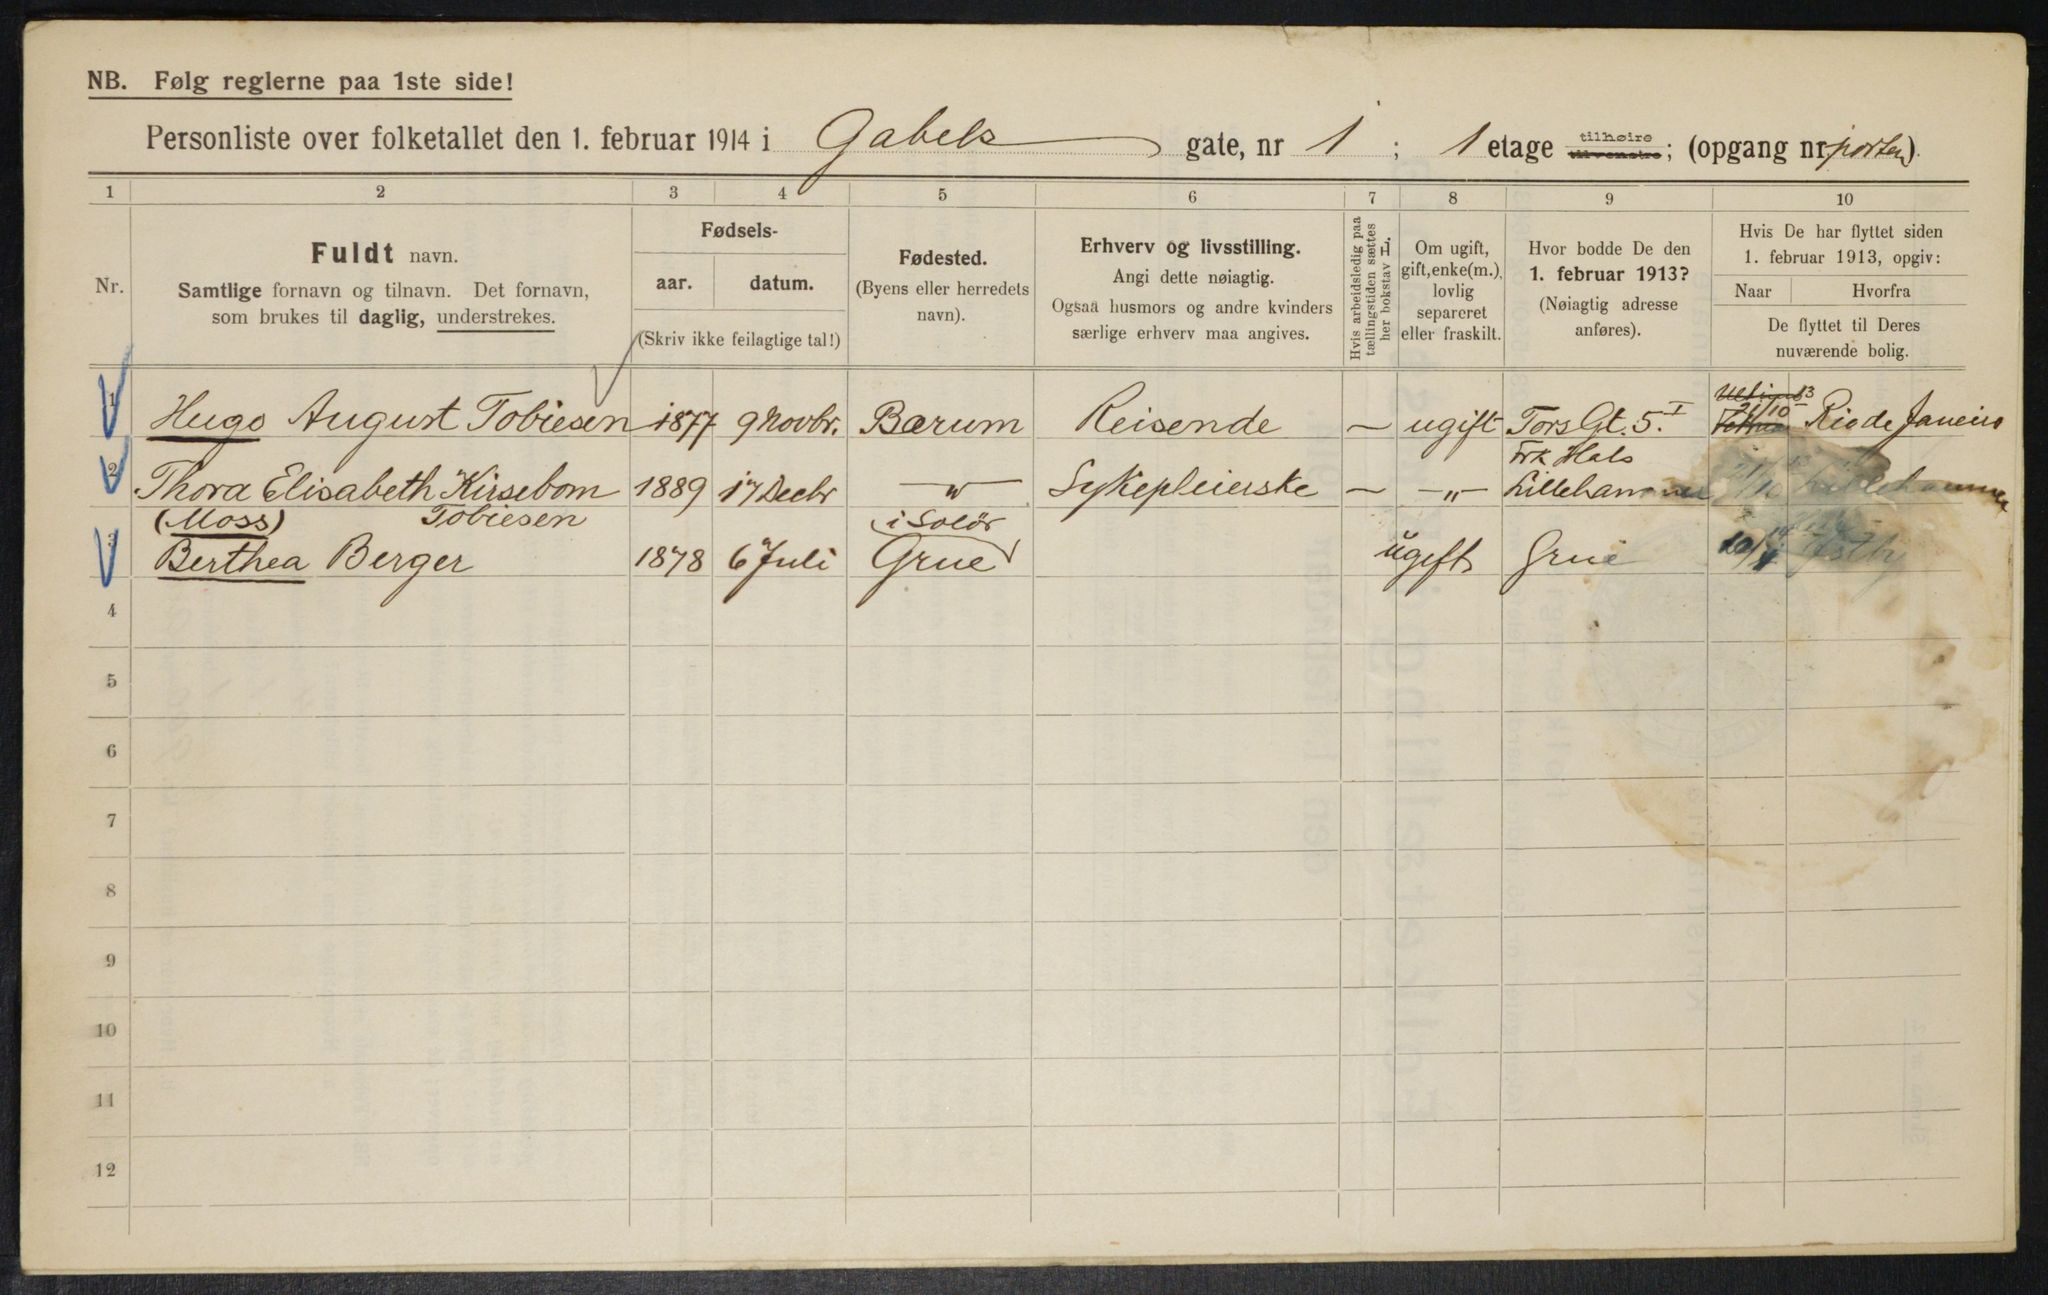 NB. Følg reglerne paa 1ste side!
Personliste over folketallet den 1. februar 1914 i Gabels gate, nr 1 ; 1 etage tilhøire tilvenstre; (opgang nr porten).
1 2 3 4 5 6 7 8 9 10
Nr.
Fuldt navn.
Samtlige fornavn og tilnavn. Det fornavn,
som brukes til daglig, understrekes.
Fødsels-
aar. datum.
(Skriv ikke feilagtige tal!)
Fødested.
(Byens eller herredets
navn).
Erhverv og livsstilling.
Angi dette nøiagtig.
Ogsaa husmors og andre kvinders
særlige erhverv maa angives.
Hvis arbeidsledig paa
tællingstiden sættes
her bokstav L.
Om ugift,
gift, enke(m.),
lovlig
separeret
eller fraskilt.
Hvor bodde De den
1. februar 1913?
(Nøiagtig adresse
anføres).
Hvis De har flyttet siden
1. februar 1913, opgiv:
Naar Hvorfra
De flyttet til Deres
nuværende bolig.
1 Hugo August Tobiesen 1877 9 Novbr. Bærum Reisende — ugift Tors Gt. 5. I Rio de Janeiro
Frk Hals
2 Thora Elisabeth Kirsebom 1889 17 Decbr — " — Sykepleierske — — " — Lillehammer Lillehammer
(Moss) Tobiesen i Solör
3 Berthea Berger 1878 6 Juli Grue ugift Grue
4
5
6
7
8
9
10
11
12